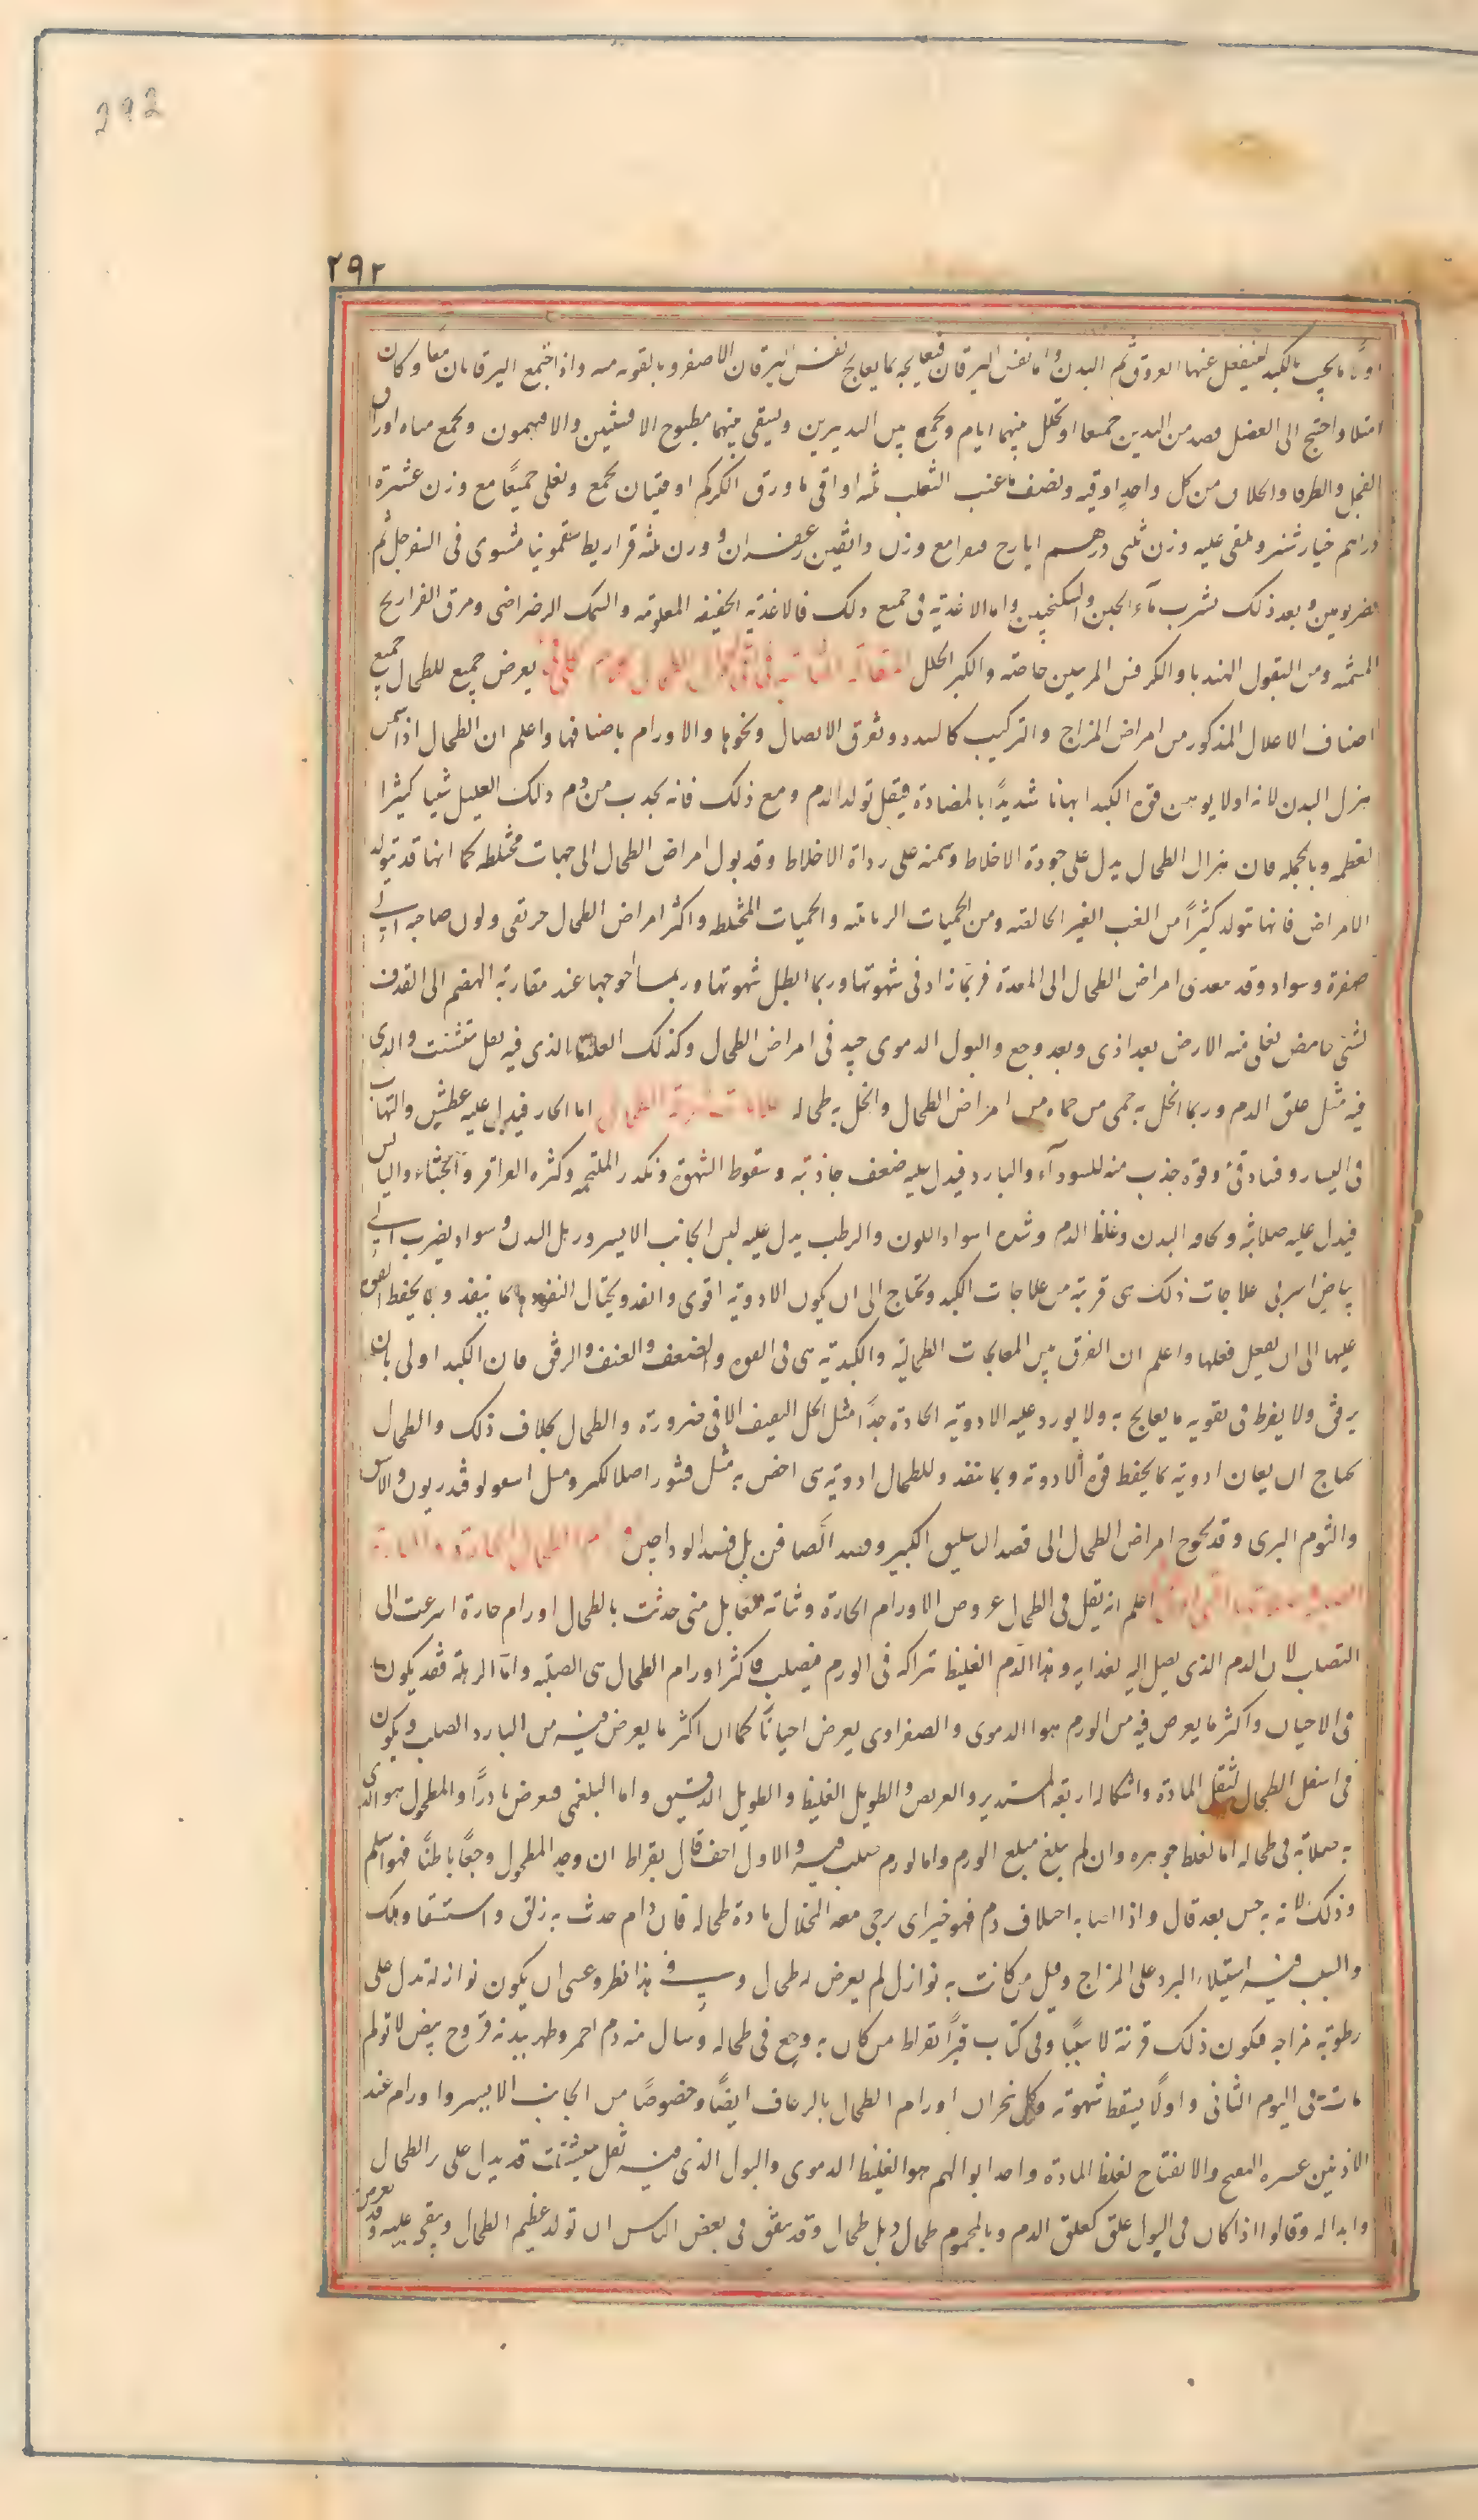 292
٢٩٢
اولا ما يجب بالكبد لينفعل عنها العروق ثم البدن واما نفس اليرقان فيعالجه بما يعالج نفس اليرقان الاصفر وما يقويه منه واذا اجتمع اليرقانان معا وكان
امتلا واحتيج الى الفصل فصد من اليدين جميعا او تحلل بينهما ايام ويجمع بين التدبيرين ويسقى بينهما مطبوخ الافسنتين والافيمون ويجمع مياه اوراق
الفجل والطرفا والخلاف من كل واحد اوقيه ونصف ما عنب الثعلب ثلثه اواقى ما ورق الكركم اوقيتان يجمع ويغلى جميعا مع وزن عشرة
دراهم خيار شنبر ويلقى عليه وزن ثلثى درهم ايارح فيقرا مع وزن دانقين زعفران ووزن ثلثه قراريط سقمونيا مشوى فى السفرجل ثم
يصبر يومين وبعد ذلك يشرب ماء الجبن والسكنجبين واما الاغذية فى جميع ذلك فالاغذيه الخفيفه المعلومه والسمك الرضراضى ومرق الفراريج
المسمنه ومن البقول الهندبا والكرفس المربيين خاصه والكبر المخلل المقالة الثانيه فى احوال الطحال يعرض جميع للطحال جميع
اصناف الاعلال المذكور من امراض المزاج والتركيب كالسدد وتفرق الاتصال ونحوها والاورام باصنافها واعلم ان الطحال اذا سمن
هزل البدن لانه اولا يوهن قوه الكبد ايهانا شديدا بالمضادة فيقل تولد الدم ومع ذلك فانه يجذب من دم ذلك العليل شيا كثيرا
لعظمه وبالجمله فان هزال الطحال يدل على جودة الاخلاط وسمنه على رداة الاخلاط وقد يول امراض الطحال الى حميات مختلطه كما انها قد تولد
الامراض فانها تولد كثيرا من الغب الغير الخالصه ومن الحميات الربائته والحميات المختلطه واكثر امراض الطحال خريفى ولون صاحبه الى
صفرة وسواد وقد يتعدى امراض الطحال الى المعدة فربما زاد فى شهوتها وربما ابطل شهوتها وربما احوجها عند مقاربة الهضم الى القذف
بشئ حامض يغلى منه الارض بعد اذى وبعد وجع والبول الدموى جيد فى امراض الطحال وكذلك الغليظ الذى فيه ثفل متشتت والذى
فيه مثل علق الدم وربما انحل به حمى من حماه من امراض الطحال وانحل به طحاله علامات امزجة الطحال اما الحار فيدل عليه عطش والتهاب
فى اليسار وفساد قئ وقوه جذب منه للسوداء والبارد فيدل عليه ضعف جاذبته وسقوط الشهوة وتكدر الملتحمه وكثره القراقر والجشاء واليابس
فيدل عليه صلابة ونحافه البدن وغلظ الدم وشده اسوداد اللون والرطب يدل عليه لين الجانب الايسر ورهل البدن وسواد يضرب الى
بياض اسربى علاجات ذلك هى قريبة من علاجات الكبد وتحتاج الى ان يكون الادويه اقوى وانفذ ويحتال لتنفيذها بما ينفذ وبما يحفظ القوة
عليها الى ان يفعل فعلها واعلم ان الفرق بين المعالجات الطحاليه والكبديه هى فى القوه والضعف والعنف والرفق فان الكبد اولى بان
يرفق ولا يفرط فى تقويه ما يعالج به ولا يورد عليه الادويه الحادة جدا مثل الخل الثقيف الا فى ضرورة والطحال بخلاف ذلك والطحال
يحتاج ان يعان ادويه بما يحفظ قوه الادويه وبما ينفذ وللطحال ادويه هى اخص به مثل قشور اصل الكبر ومثل اسقولوقندريون والاشق
والثوم البرى وقد يحوج امراض الطحال الى فصد الباسليق الكبير وفصد الصافن بل فصد الوداجين اورام الطحال الحارة والباردة
اعلم انه يقل فى الطحال عروض الاورام الحارة وثباته فيها بل متى حدثت بالطحال اورام حارة اسرعت الى
التصلب لان الدم الذى يصل اليه لغذايه وهذا الدم الغليظ تراكه فى الورم فيصلب فاكثر اورام الطحال هى الصلبه واما الرهلة فقد يكون
فى الاحيان واكثر ما يعرض فيه من الورم هو الدموى والصفراوى يعرض احيانا كما ان اكثر ما يعرض فيه من البارد الصلب ويكون
فى اسفل الطحال لثقل المادة واشكاله اربعه المستدير والعريض والطويل الغليظ والطويل الدقيق واما البلغمى فيعرض نادرا والمطحول هو الذى
به صلابة فى طحاله اما لغلظ جوهره وان لم يبلغ مبلغ الورم واما لورم صلب فيه والاول اخف قال بقراط ان وجد المطحول وجعا باطنا فهو اسلم
وذلك لانه به حس بعد قال واذا اصابه اختلاف دم فهو خير اى يرجى معه انحلال مادة طحاله فان دام حدث به زلق واستسقا وهلك
والسبب فيه استيلاء البرد على المزاج وقيل من كانت به نوازل لم يعرض له طحال وفى هذا نظر وعسى ان يكون نوازله تدل على
رطوبة مزاجه فيكون ذلك قرينة لا سببا وفى كتاب قبر ابقراط من كان به وجع فى طحاله وسال منه دم احمر وظهر ببدنه قروح بيض لا تولم
مات فى اليوم الثانى واولا يسقط شهوته وكل بحران اورام الطحال بالرعاف ايضا وخصوصا من الجانب الايسر واورام عند
الاذنين عسره النضج والانفتاح لغلظ المادة واحد ابوالهم هو الغليظ الدموى والبول الذى فيه ثفل متشتت قد يدل على الطحال
وابداله وقالوا اذا كان فى البول علق كعلق الدم وبالمحموم طحال ذبل طحال وقد يتفق فى بعض الناس ان تولد عظيم الطحال ويبقى عليه وقد يعرض